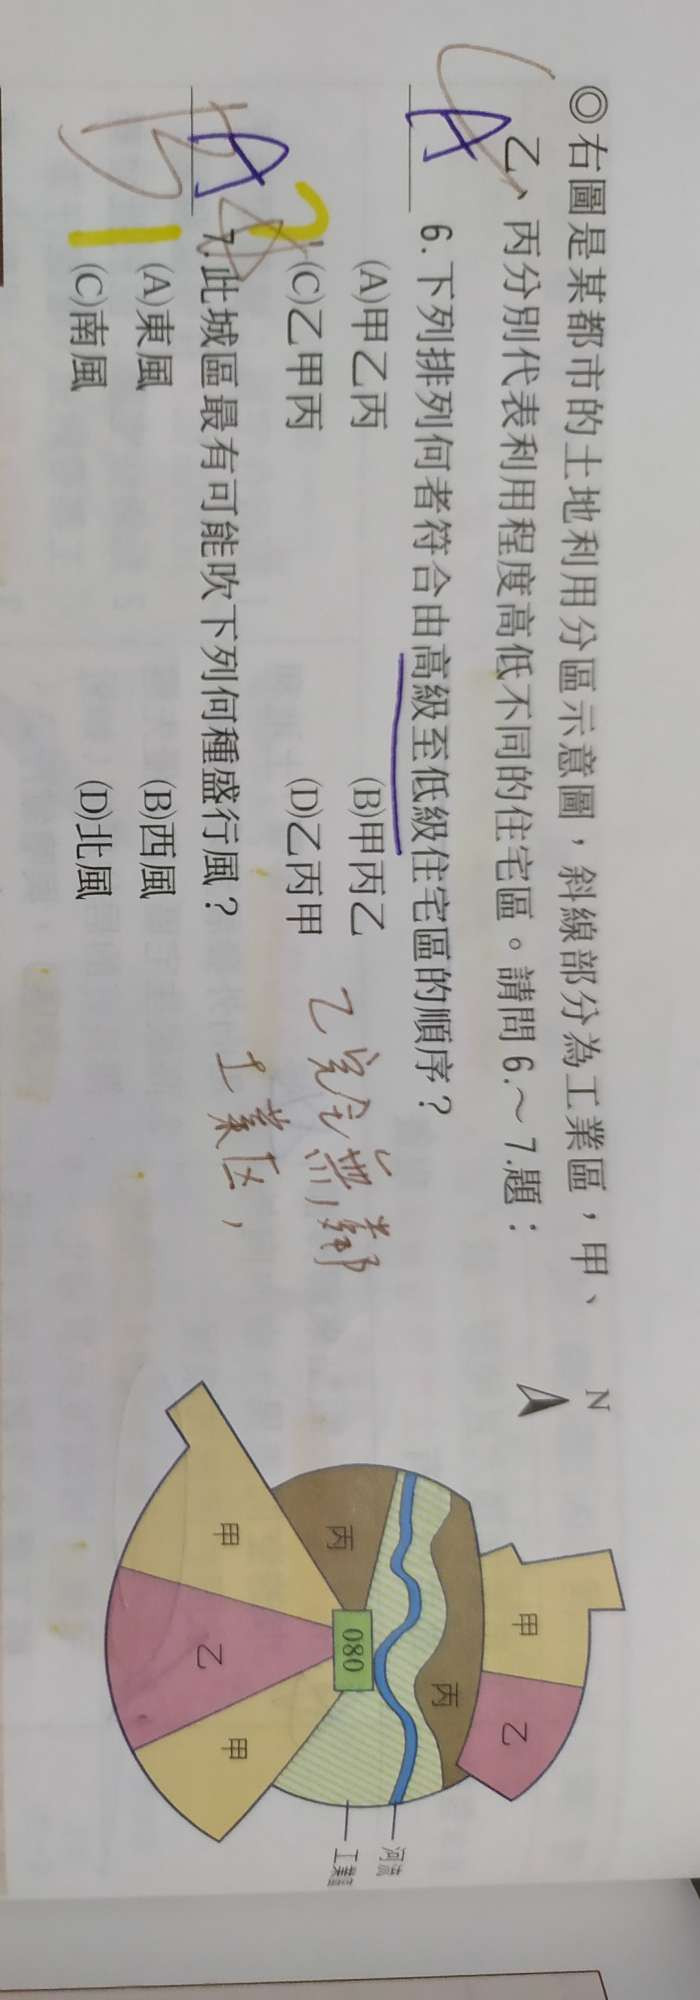 ◎右圖是某都市的土地利用分區示意圖，斜線部分為工業區，甲、
乙、丙分別代表利用程度高低不同的住宅區。請問6.～7.題：
A 6.下列排列何者符合由高級至低級住宅區的順序？
(A)甲乙丙 (B)甲丙乙
(C)乙甲丙 (D)乙丙甲
乙完全無鄰
工業区，
A 7.此城區最有可能吹下列何種盛行風？
(A)東風 (B)西風
(C)南風 (D)北風
N
甲
乙
丙
丙
CBD
甲
乙
甲
河流
工業區